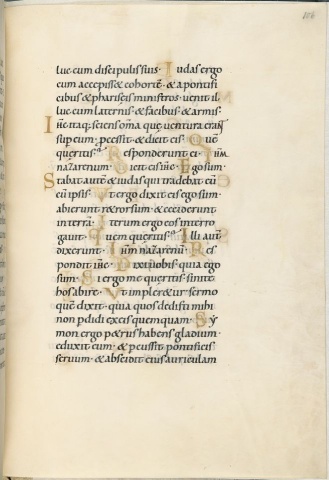 106
luc cum discipulis suis· Iudas ergo
cum accepisset cohortē· & a pontifi
cibus & phariseis ministros· uenit il
luc cum laternis· & facibus· & armis·
Ihē itaq; sciens om̄a que uentura erant
sup eum· pcessit· & dicit eis· Quē
queritis· Responderunt ei· ihm̄
nazarenum· Dicit eis ihē· Ego sum·
Stabat autē & iudas qui tradebat eū
cū ipsis· Vt ergo dixit eis ego sum·
abierunt retrorsum· & ceciderunt
in terrā· Iterum ergo eos interro
gauit· Quem queritis· Illi autē
dixerunt· Ihm̄ nazarenū· Res
pondit ihē· Dixi uobis· quia ego
sum· Si ergo me queritis· sinite
hos abire· Vt impleretur sermo
quē dixit· quia quos dedisti mihi
non pdidi ex eis quemquam· Sy
mon ergo petrus habens gladium·
eduxit eum· & pcussit pontificis
seruum· & abscidit eius auriculam